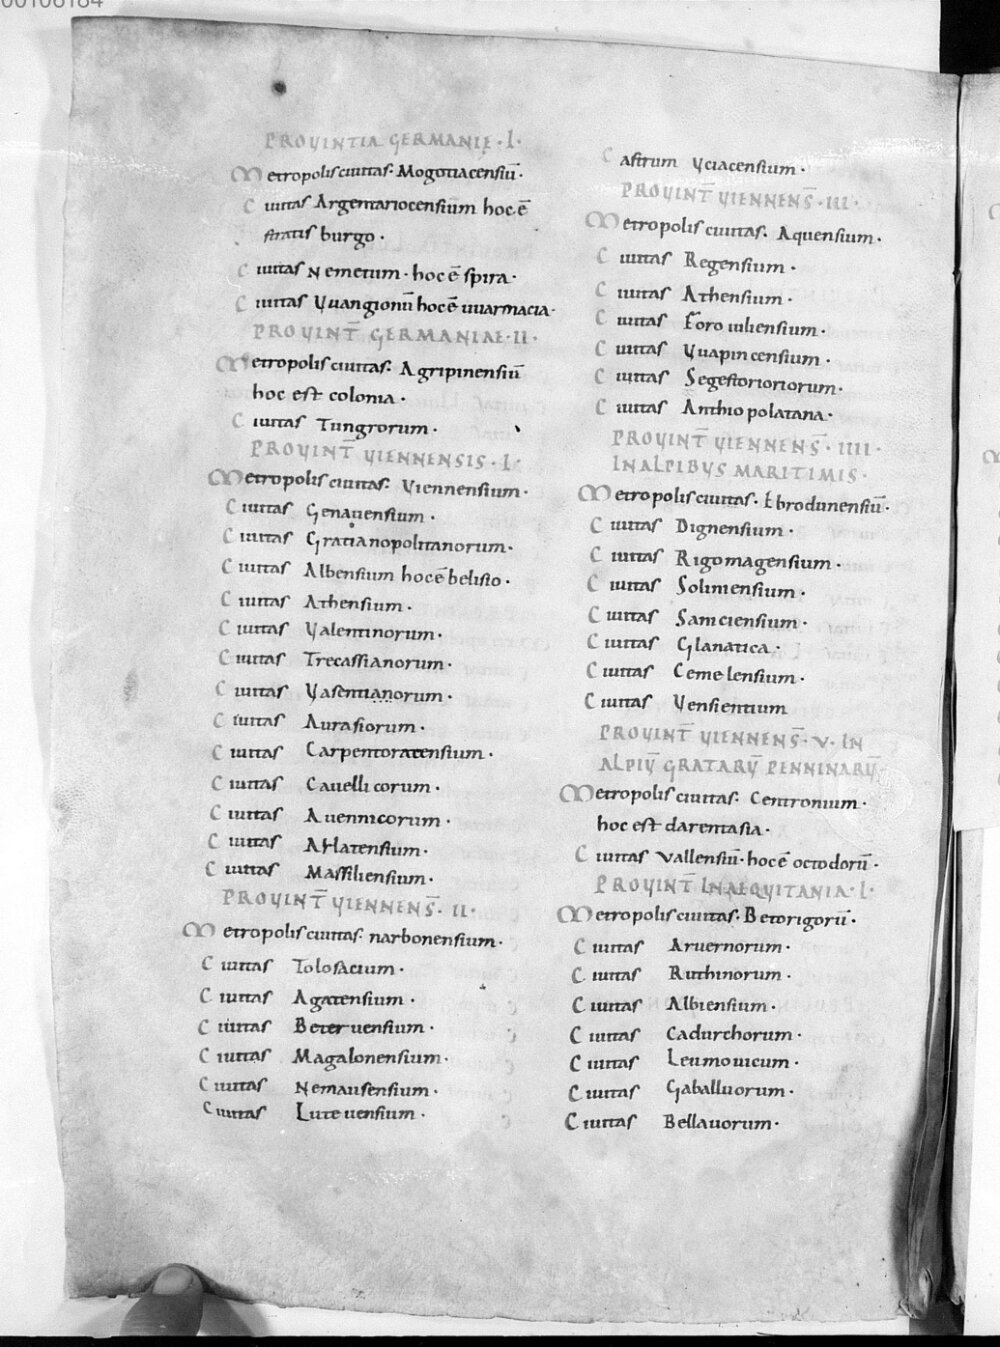 00106184
PROVINTIA GERMANIE · I ·
Metropolis ciuitas · Mogotiacensiu̅ ·
Ciuitas Argentariocensium hoc e̅
stratis burgo ·
Ciuitas Nemetum · hoc e̅ spira ·
Ciuitas Vuangionu̅ hoc e̅ uuarmacia ·
PROVINT̅ GERMANIAE · II ·
Metropolis ciuitas · Agripinensiu̅
hoc est colonia ·
Ciuitas Tungrorum ·
PROVINT̅ VIENNENSIS · I ·
Metropolis ciuitas · Viennensium ·
Ciuitas Genauensium ·
Ciuitas Gratianopolitanorum ·
Ciuitas Albensium hoc e̅ belisio ·
Ciuitas Athensium ·
Ciuitas Valentinorum ·
Ciuitas Trecassianorum ·
Ciuitas Vasentianorum ·
Ciuitas Aurasiorum ·
Ciuitas Carpentoratensium ·
Ciuitas Cauellicorum ·
Ciuitas Auennicorum ·
Ciuitas Arlatensium ·
Ciuitas Massiliensium ·
PROVINT̅ VIENNENS̅ · II ·
Metropolis ciuitas · narbonensium ·
Ciuitas Tolosacium ·
Ciuitas Agatensium ·
Ciuitas Beteruensium ·
Ciuitas Magalonensium ·
Ciuitas Nemausensium ·
Ciuitas Luteuensium ·
Castrum Vciacensium ·
PROVINT̅ VIENNENS̅ · III ·
Metropolis ciuitas · Aquensium ·
Ciuitas Regensium ·
Ciuitas Athensium ·
Ciuitas Foro iuliensium ·
Ciuitas Vuapincensium ·
Ciuitas Segestorioriorum ·
Ciuitas Anthiopolatana ·
PROVINT̅ VIENNENS̅ · IIII ·
IN ALPIBVS MARITIMIS ·
Metropolis ciuitas · Ebrodunensiu̅ ·
Ciuitas Dignensium ·
Ciuitas Rigomagensium ·
Ciuitas Solimensium ·
Ciuitas Samciensium ·
Ciuitas Glanatica ·
Ciuitas Cemelensium ·
Ciuitas Vensientium
PROVINT̅ VIENNENS̅ · V · IN
ALPIV̅ GRATARV̅ PENNINARV̅ ·
Metropolis ciuitas · Centronium ·
hoc est darentasia ·
Ciuitas Vallensiu̅ · hoc e̅ octodoru̅ ·
PROVINT̅ IN AEQVITANIA · I ·
Metropolis ciuitas · Betorigoru̅ ·
Ciuitas Aruernorum ·
Ciuitas Ruthinorum ·
Ciuitas Albiensium ·
Ciuitas Cadurchorum ·
Ciuitas Leumouicum ·
Ciuitas Gaballuorum ·
Ciuitas Bellauorum ·